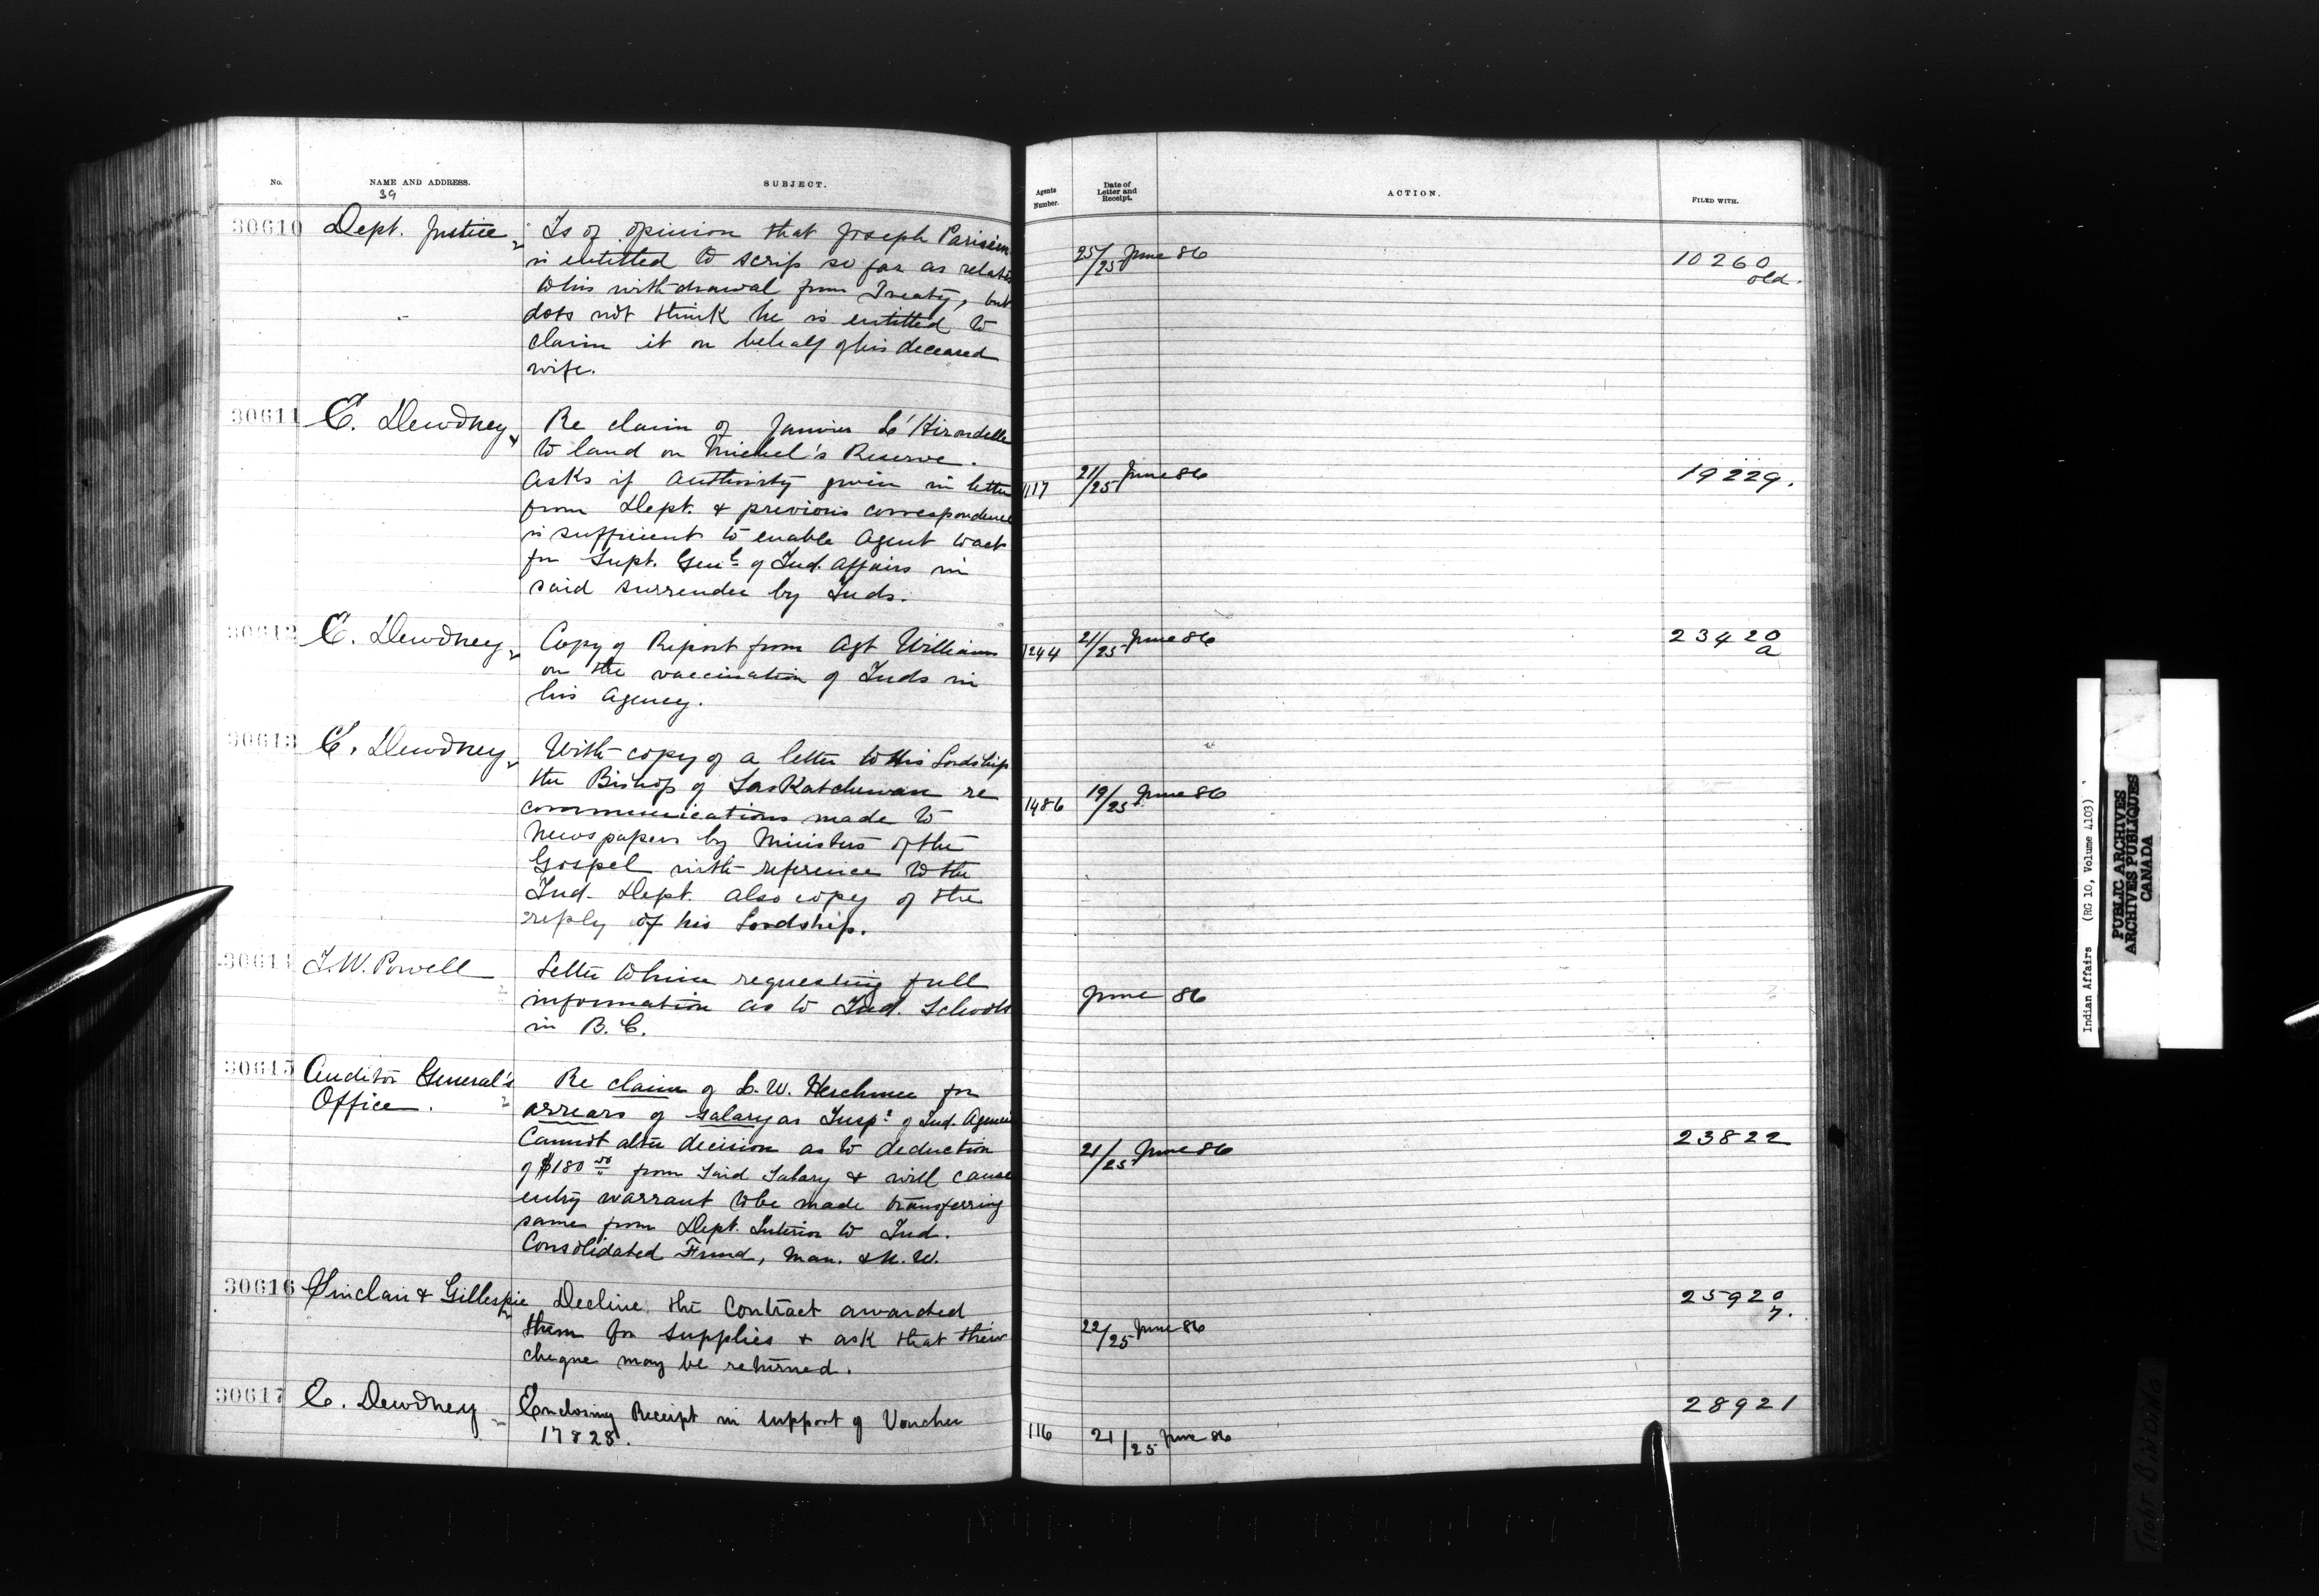 No.
NAME AND ADDRESS.
SUBJECT.
Agents Number.
Date of Letter and Receipt.
ACTION.
FILED WITH.
39
30610
Dept. Justice
Is of opinion that Joseph Parisien
is entitled to scrip so far as relates
to his withdrawal from Treaty, but
does not think he is entitled to
claim it on behalf of his deceased
wife.
25/25 June 86
10260
old.
30611
E. Dewdney
Re claim of Janvier L'Hirondelle
to land on Michel's Reserve.
Asks if authority given in letter
from Dept. & previous correspondence
is sufficient to enable Agent to act
for Supt. Genl. of Ind. Affairs in
said surrender by Inds.
1117
21/25 June 86
19229.
30612
E. Dewdney
Copy of Report from Agt Williams
on the vaccination of Inds in
his Agency.
1244
21/25 June 86
23420
a
30613
E. Dewdney
With copy of a letter to His Lordship
the Bishop of Saskatchewan re
communications made to
newspapers by Ministers of the
Gospel with reference to the
Ind. Dept. also copy of the
reply of his Lordship.
1486
19/25 June 86
30614
I. W. Powell
Letter to him requesting full
information as to Ind. Schools
in B. C.
June 86
30615
Auditor General's
Office.
Re claim of L. W. Herchmer for
arrears of salary as Inspr. of Ind. Agencies
Cannot alter decision as to deduction
of $180 00 from said Salary & will cause
entry warrant to be made transferring
same from Dept. Interior to Ind.
Consolidated Fund, Man. & N. W.
21/25 June 86
23822
30616
Sinclair & Gillespie
Decline the contract awarded
them for supplies & ask that their
cheque may be returned.
22/25 June 86
25920
7.
30617
E. Dewdney
Enclosing Receipt in support of Voucher
17828.
116
21/25 June 86
28921
Indian Affairs (RG 10, Volume 4103)
PUBLIC ARCHIVES
ARCHIVES PUBLIQUES
CANADA